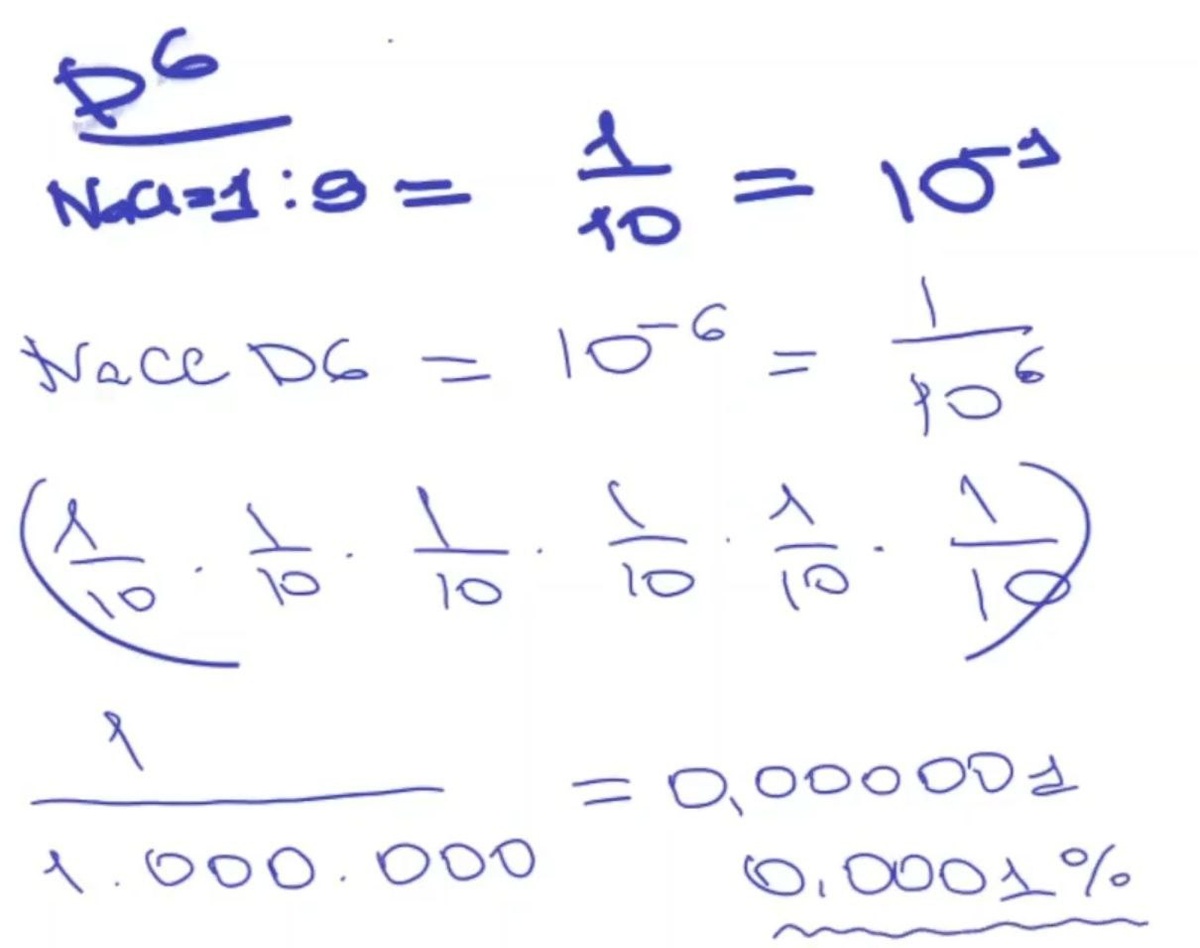 D6
NaCl=1:9 = 1/10 = 10⁻¹
NaCl D6 = 10⁻⁶ = 1/10⁶
(1/10 · 1/10 · 1/10 · 1/10 · 1/10 · 1/10)
1/1.000.000 = 0,000001
0,0001%